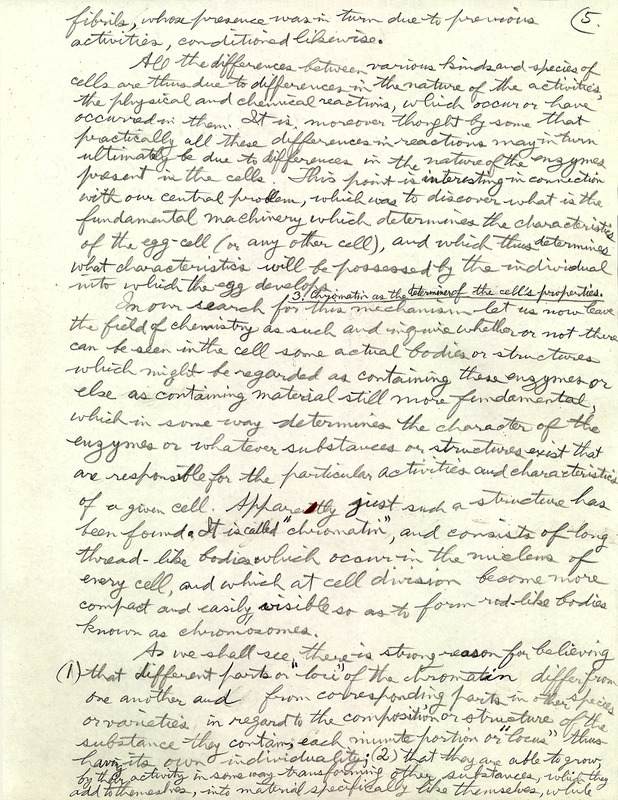 fibrils, whose presence was in turn due to previous (5.
activities, conditioned likewise.
All the differences between various kinds and species of
cells are thus due to differences in the nature of the activities,
the physical and chemical reactions, which occur or have
occurred in them. It is, moreover thought by some that
practically all these differences in reactions may in turn
ultimately be due to differences in the nature of the enzymes
present in the cells. This point is interesting in connection
with our central problem, which was to discover what is the
fundamental machinery which determines the characteristics
of the egg-cell (or any other cell), and which thus determines
what characteristics will be possessed by the individual
into which the egg develops.
3. Chromatin as the determiner of the cell's properties.
In our search for this mechanism let us now leave
the field of chemistry as such and inquire whether or not there
can be seen in the cell some actual bodies or structures
which might be regarded as containing these enzymes or
else as containing material still more fundamental,
which in some way determines the character of the
enzymes or whatever substances or structures exist that
are responsible for the particular activities and characteristics
of a given cell. Apparently just such a structure has
been found. It is called "chromatin", and consists of long
thread-like bodies which occur in the nucleus of
every cell, and which at cell division become more
compact and easily visible so as to form rod-like bodies
known as chromosomes.
As we shall see, there is strong reason for believing
(1) that different parts or "loci" of the chromatin differ from
one another and from corresponding parts in other species
or varieties, in regard to the composition or structure of the
substance they contain, each minute portion or "locus" thus
having its own individuality; (2) that they are able to grow,
by their activity in some way transforming other substances, which they
add to themselves, into material specifically like themselves, while